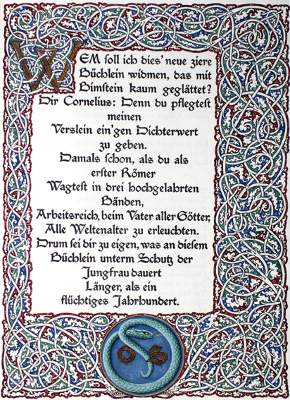 WEM soll ich dies' neue ziere
Büchlein widmen, das mit
Bimstein kaum geglättet?
Dir Cornelius: Denn du pflegtest
meinen
Verslein ein'gen Dichterwert
zu geben.
Damals schon, als du als
erster Römer
Wagtest in drei hochgelahrten
Bänden,
Arbeitsreich, beim Vater aller Götter,
Alle Weltenalter zu erleuchten.
Drum sei dir zu eigen, was an diesem
Büchlein unterm Schutz der
Jungfrau dauert
Länger, als ein
flüchtiges Jahrhundert.
O S